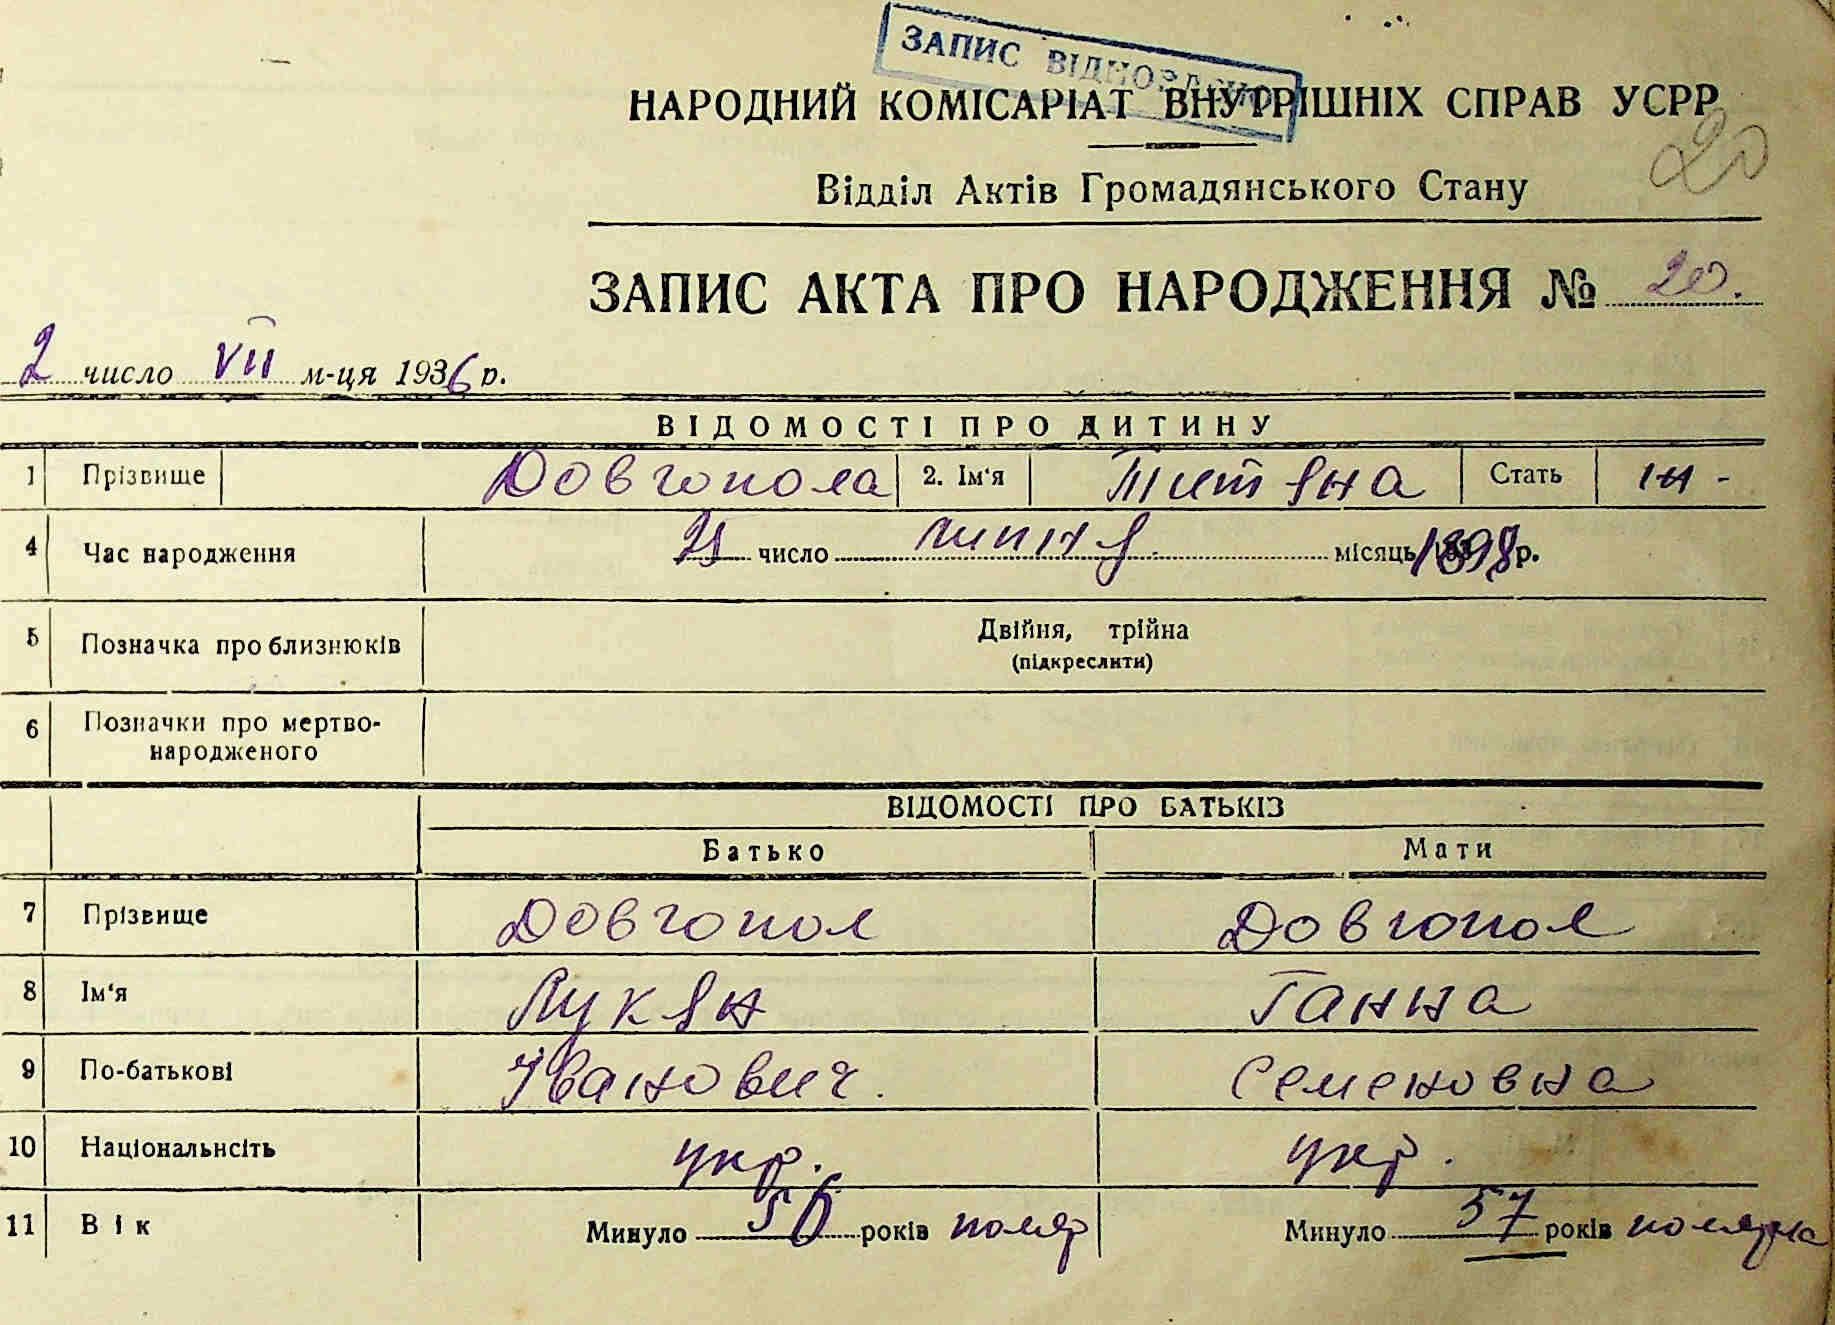 ЗАПИС ВІДНОВЛЕНО
НАРОДНИЙ КОМІСАРІАТ ВНУТРІШНІХ СПРАВ УСРР
20
Відділ Актів Громадянського Стану
ЗАПИС АКТА ПРО НАРОДЖЕННЯ № 20.
2 число VII м-ця 1936 р.
ВІДОМОСТІ ПРО ДИТИНУ
1 Прізвище Довгопола 2. Ім'я Титяна Стать жн -
4 Час народження число липня місяць р.
5 Позначка про близнюків Двійня, трійна
(підкреслити)
6 Позначки про мертво-
народженого
ВІДОМОСТІ ПРО БАТЬКІЗ
Батько Мати
7 Прізвище Довгопол Довгопол
8 Ім'я Лукян Ганна
9 По-батькові Іванович. Семеновна
10 Національнсіть укр. укр.
11 Вік Минуло 56 років помер Минуло 57 років померла